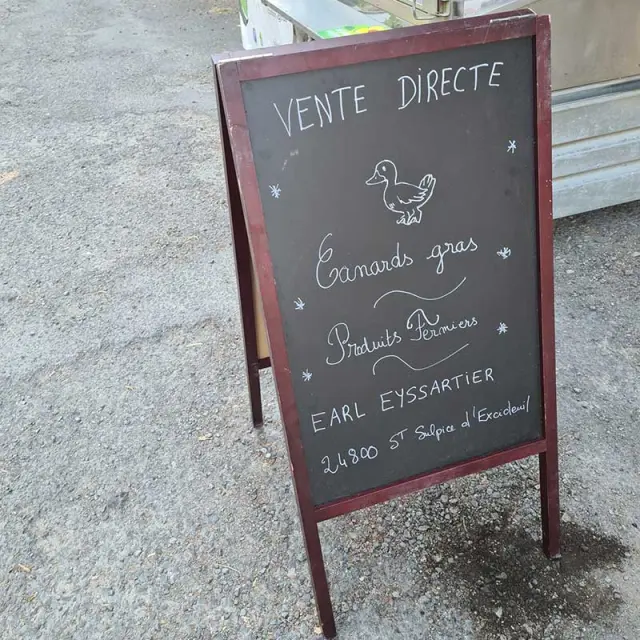 VENTE DIRECTE
Canards gras
Produits Fermiers
EARL EYSSARTIER
24800 ST Sulpice d'Excideuil